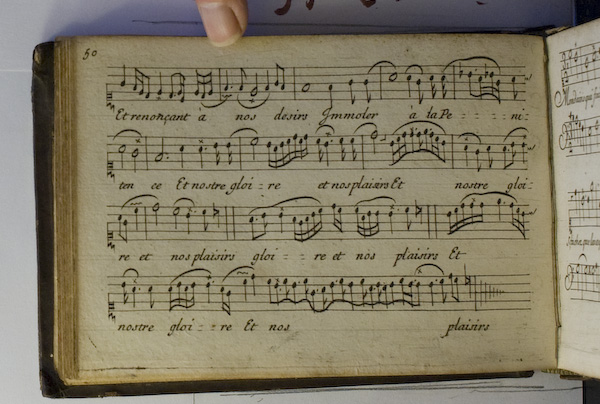 50
Et renonçant à nos desirs Jmmoler à la Pe - - - ni-
ten ce Et nostre gloi - - re et nos plaisirs Et nostre gloi-
re et nos plaisirs gloi - - - re et nos plaisirs Et
nostre gloi - - - re Et nos plaisirs